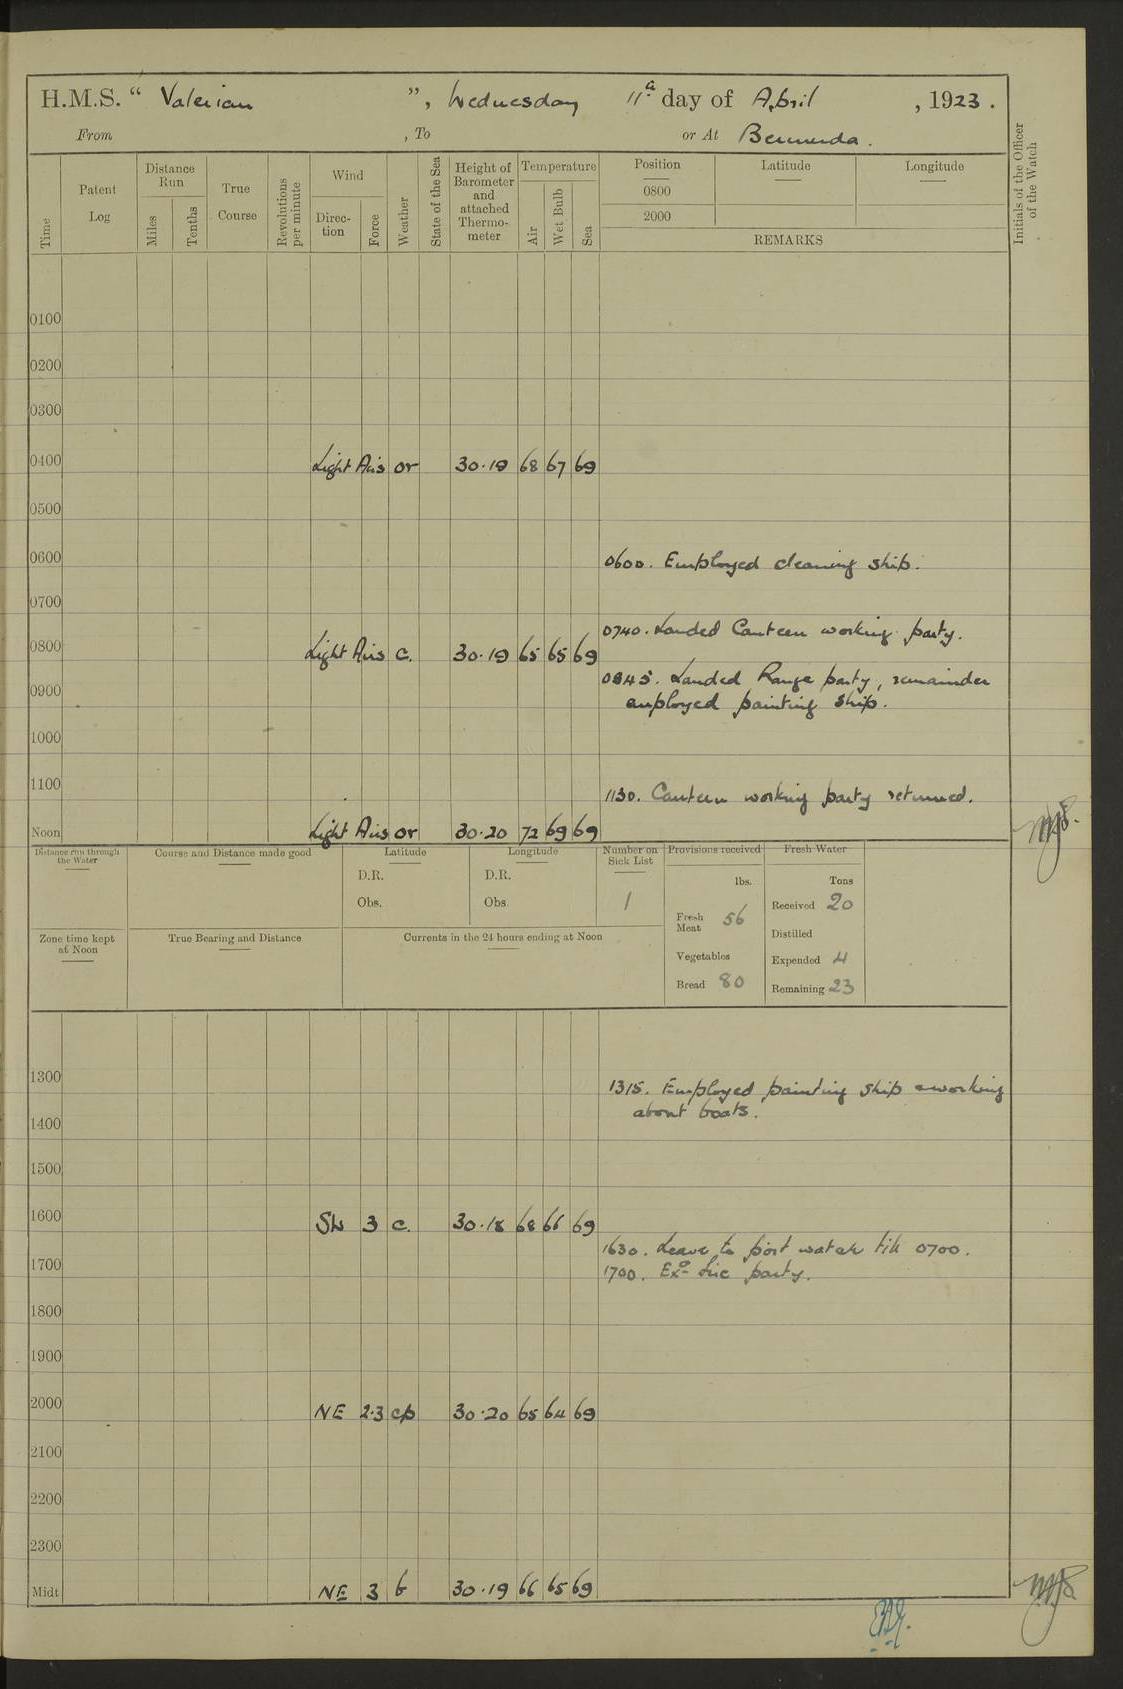 H.M.S. “ Valerian ”, Wednesday 11th day of April , 1923 .
From , To or At Bermuda .
Time
Patent Log
Distance Run
Miles
Tenths
True Course
Revolutions per minute
Wind
Direc-tion
Force
Weather
State of the Sea
Height of Barometer and attached Thermo-meter
Temperature
Air
Wet Bulb
Sea
Position
0800
2000
Latitude
Longitude
REMARKS
Initials of the Officer of the Watch
0100
0200
0300
0400 Light Airs or 30.19 68 67 69
0500
0600 0600. Employed cleaning ship.
0700
0740. Landed Canteen working party.
0800 Light Airs c. 30.19 65 65 69
0845. Landed Range party, remainder
0900 employed painting ship.
1000
1100 1130. Canteen working party returned.
Noon Light Airs or 30.20 72 69 69
Distance run through the Water
Course and Distance made good
Latitude
D.R.
Obs.
Longitude
D.R.
Obs
Number on Sick List
1
Provisions received
lbs.
Fresh Meat 56
Vegetables
Bread 80
Fresh Water
Tons
Received 20
Distilled
Expended 4
Remaining 23
Zone time kept at Noon
True Bearing and Distance
Currents in the 24 hours ending at Noon
1300 1315. Employed painting ship & working
about boats.
1400
1500
1600 SW 3 c. 30.18 68 66 69
1630. Leave to port watch till 0700.
1700 1700. Exd fire party.
1800
1900
2000 NE 2.3 cp 30.20 65 64 69
2100
2200
2300
Midt NE 3 b 30.19 66 65 69